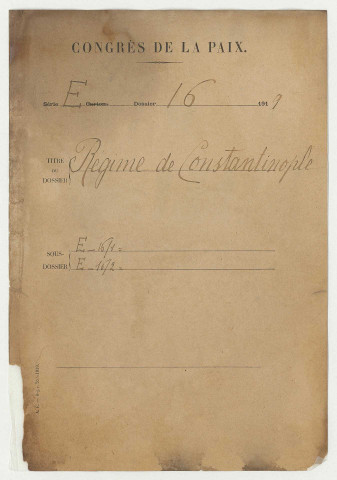 CONGRÈS DE LA PAIX.
Série E Dossier 16 191
TITRE DU DOSSIER Régime de Constantinople
SOUS-DOSSIER E - 16/1 -
E - 16/2 -